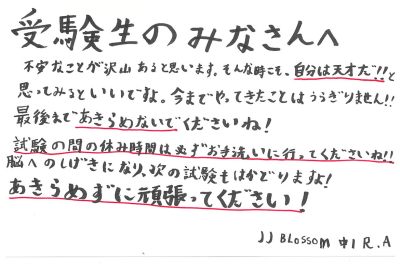 受験生のみなさんへ
不安なことが沢山あると思います。そんな時こそ、自分は天才だ!!と
思ってみるといいですよ。今までやってきたことはうらぎりません!!
最後まであきらめないでくださいね!
試験の間の休み時間は必ずお手洗いに行ってくださいね!!
脳へのしげきになり、次の試験もはかどりますよ!
あきらめずに頑張ってください!
JJ BLOSSOM 中1 R.A